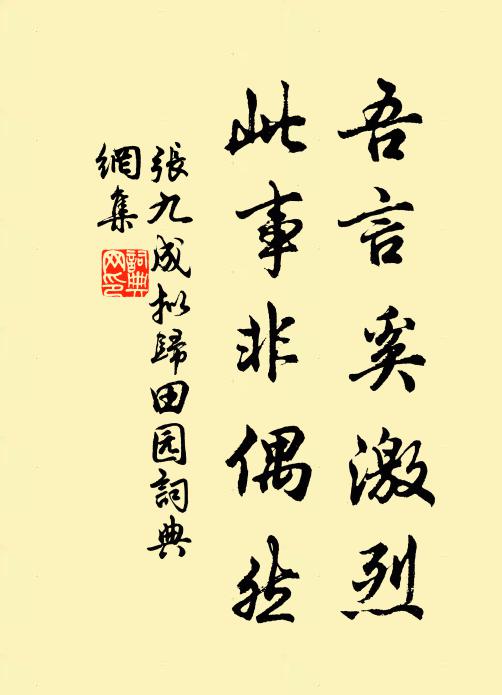 吾言奚激烈
此事非偶然
張九成拟歸田园詞典
網集
詞典網印